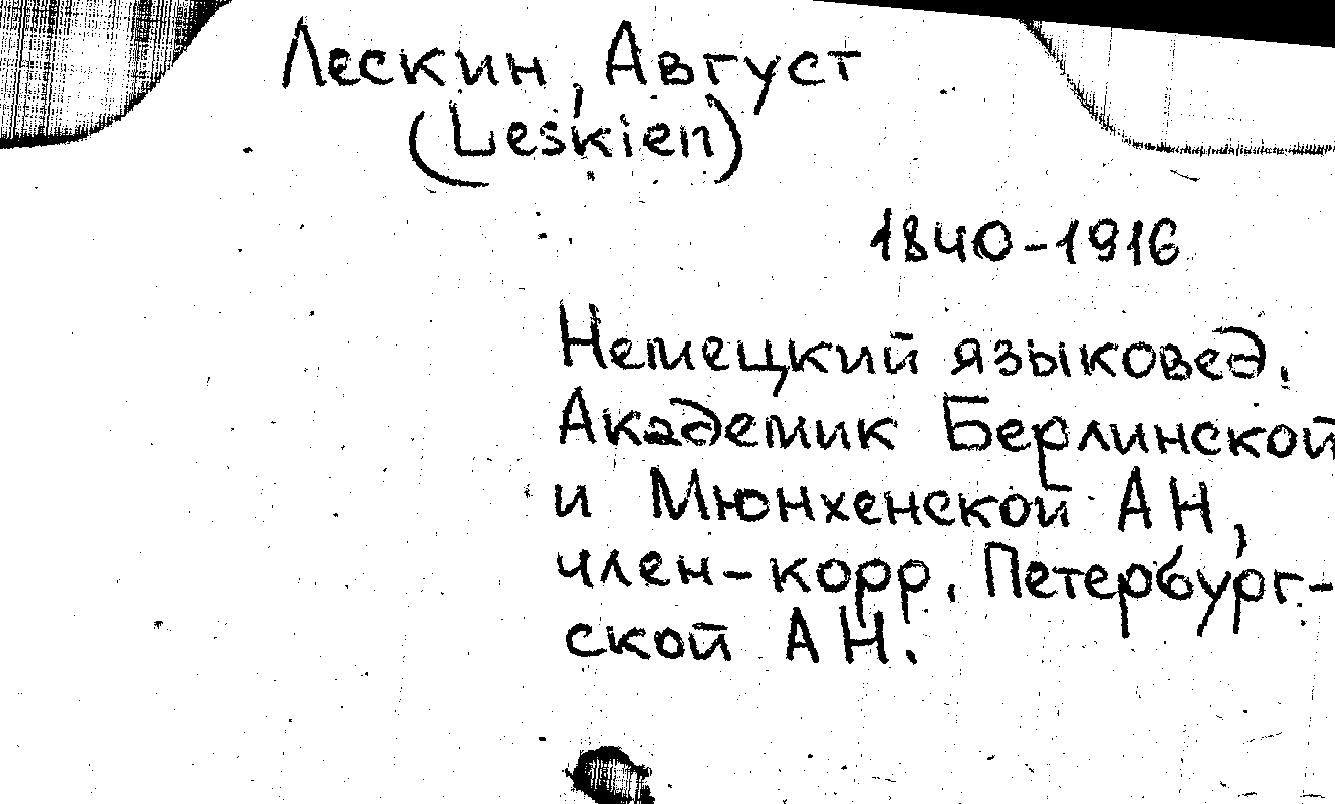 Лескин, Август
(Leskien)
1840-1916
Немецкий языковед.
Академик Берлинской
и Мюнхенской АН,
член-корр. Петербург-
ской АН.